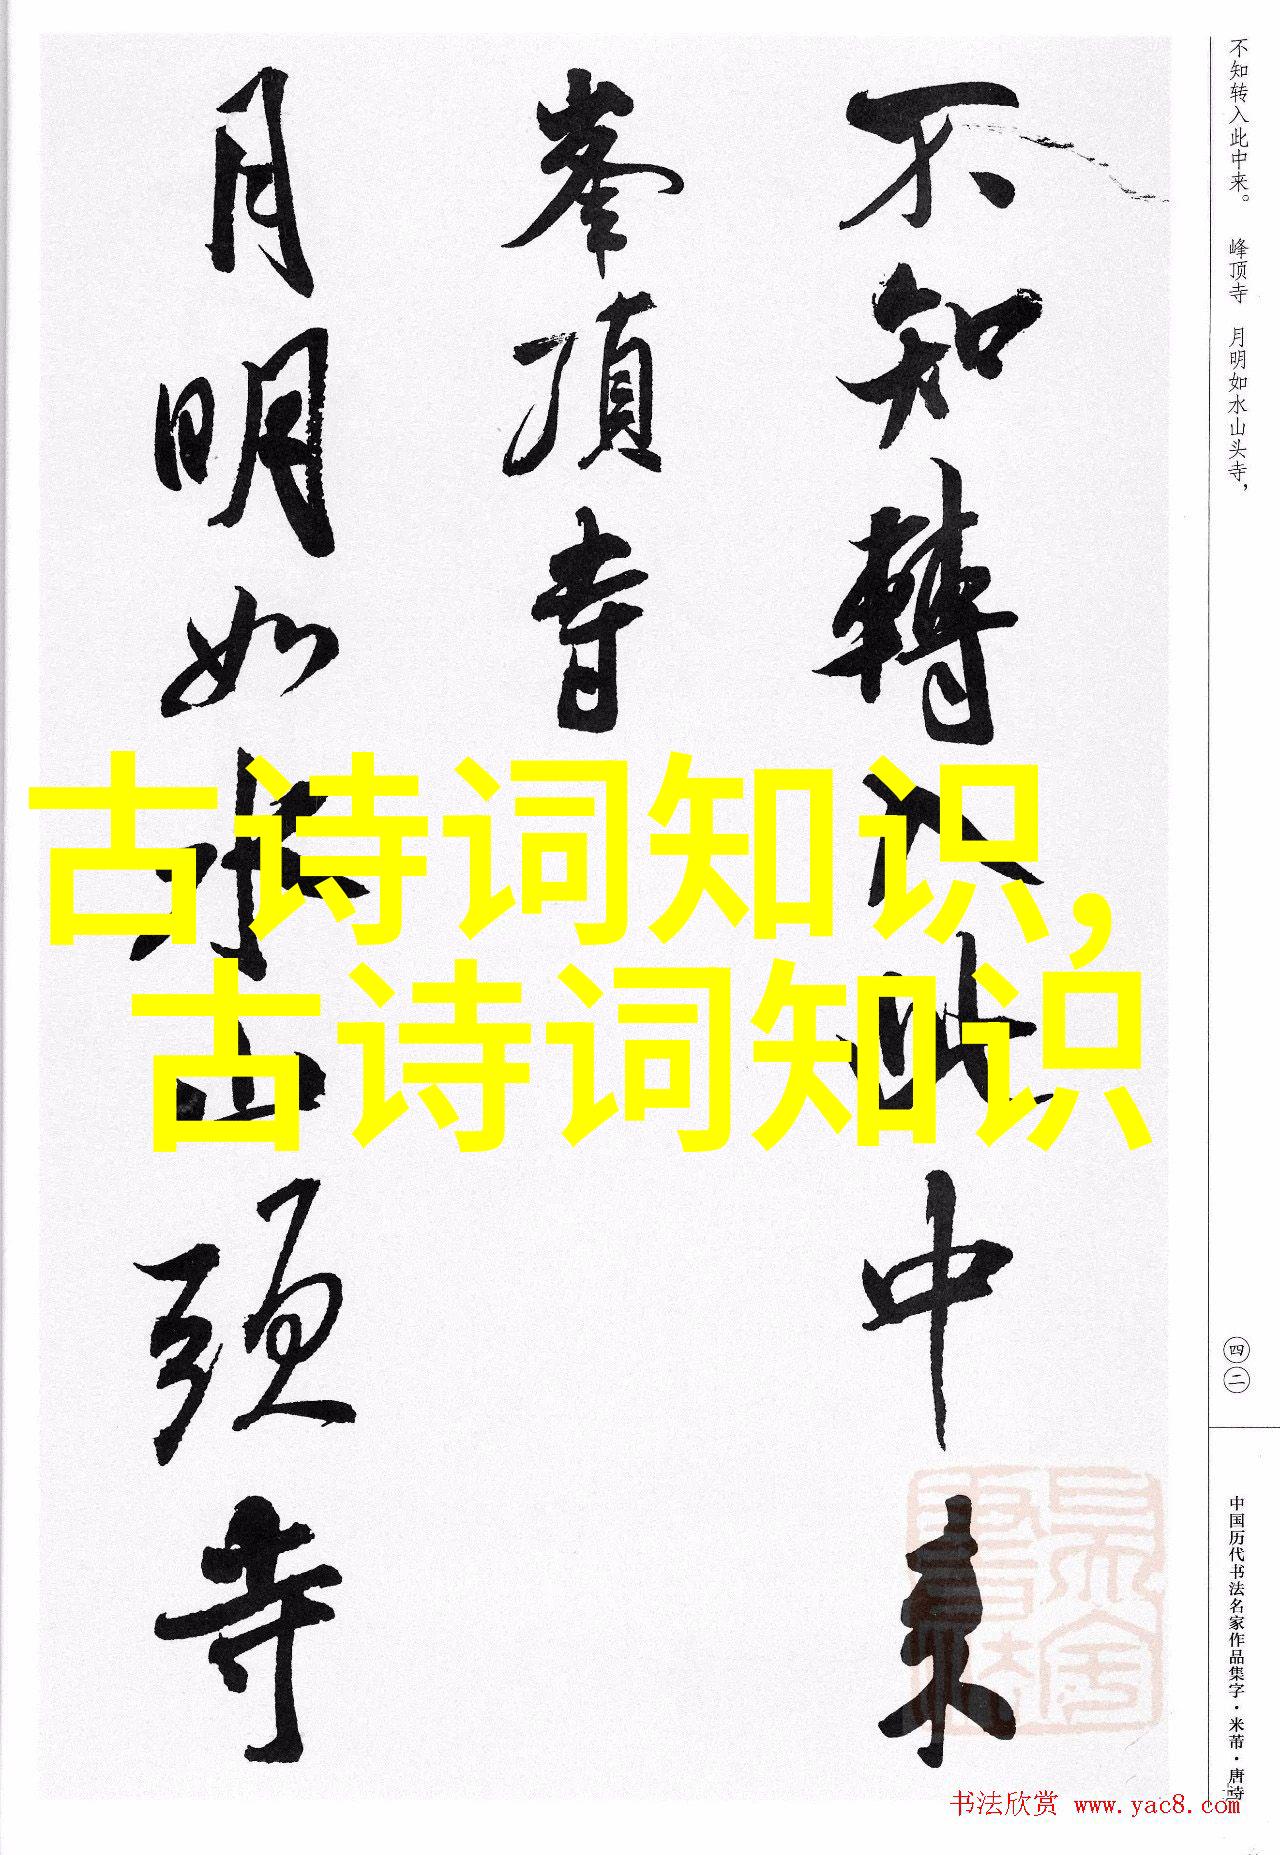 不知转入此中来。 峰顶寺 月明如水山头寺，
不知轉入此中来
峯頂寺
月明如水山頭寺
古诗词知识，
古诗词知识
四二
中国历代书法名家作品集字·米芾·唐诗
书法欣赏 www.yac8.com